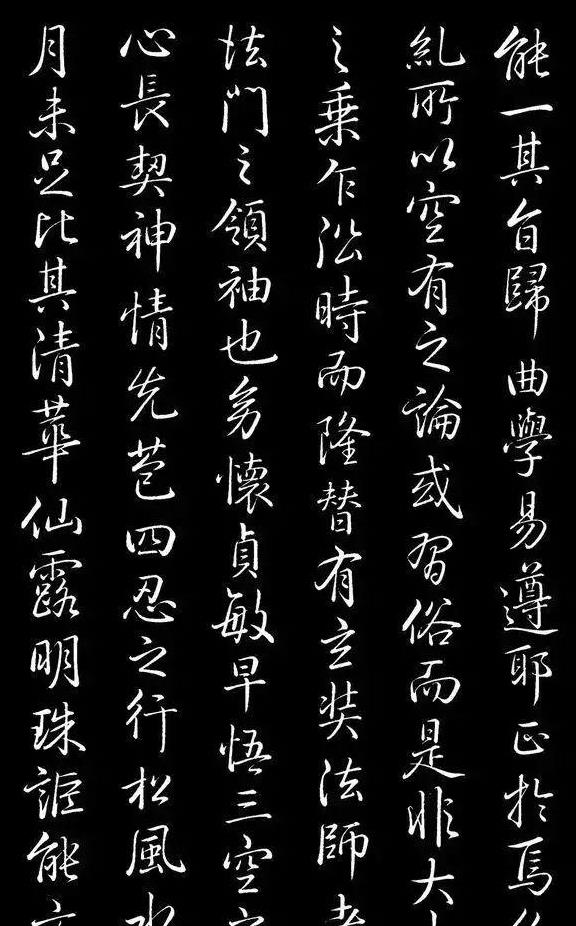 能一其旨歸曲學易遵耶正於焉
糺所以空有之論或習俗而是非大
之乘乍沿時而隆替有玄奘法師者
法門之領袖也幼懷貞敏早悟三空
心長契神情先苞四忍之行松風水
月未足比其清華仙露明珠詎能